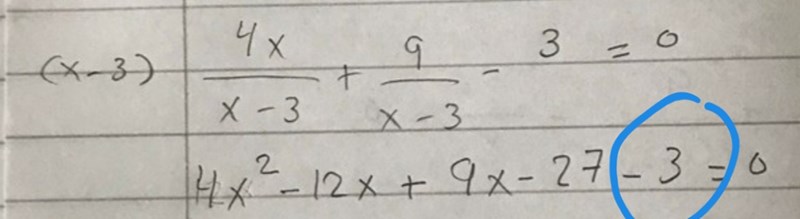 (x-3) 4x/x-3 + 9/x-3 - 3 = 0
4x² - 12x + 9x - 27 - 3 = 0